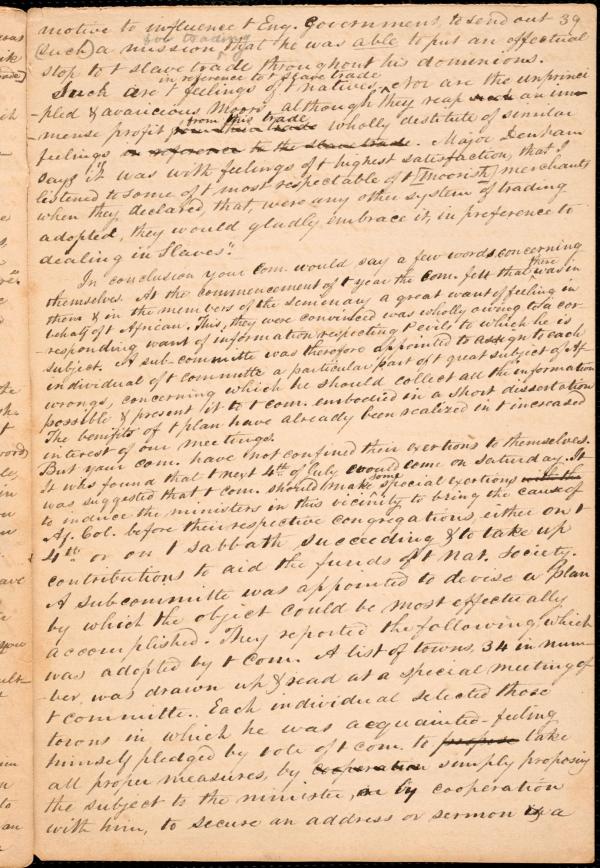 motive to influence t Eng. Government, to send out 39
(such) a mission, that he was able to put an effectual
stop to t slave trade throughout his dominions.
in reference to t slave trade
Such are t feelings of t natives. Nor are the unprinci
-pled & avaricious Moors, although they reap such an im
-mense profit from this trade wholly destitute of similar
feelings in reference to the slave trade. Major Denham
says "it was with feelings of t highest satisfaction, that I
listened to some of t most respectable of t [Moorish] merchants
when they declared, that, were any other system of trading
adopted, they would gladly embrace it, in preference to
dealing in Slaves".
In conclusion your Com. would say a few words concerning
themselves. At the commencement of t year the Com. felt that there was in
them & in the members of the seminary a great want of feeling in
behalf of t African. This, they were convinced was wholly owing to a cor-
responding want of information respecting t evils to which he is
subject. A sub-committe was therefore appointed to assign to each
individual of t committe a particular part of t great subject of Af-
wrongs, concerning which he should collect all the information
possible & present it to t com. embodied in a short dissertation
The benefits of t plan have already been realized in t increased
interest of our meetings.
But your com. have not confined their exertions to themselves.
It was found that t next 4th of July would come on Saturday. It
was suggested that t com. should make some special exertions with the
to induce the ministers in this vicinity to bring the cause of
Af. Col. before their respective congregations, either on t
4th or on t sabbath succeeding & to take up
contributions to aid the funds of t Nat. Society.
A subcommitte was appointed to devise a plan
by which the object could be most effectually
accomplished. They reported the following, which
was adopted by t Com. A list of towns, 34 in num
-ber, was drawn up & read at a special meeting of
t committe. Each individual selected those
towns in which he was acquainted - feeling
himself pledged by vote of t com. to propose take
all proper measures, by cooperation simply proposing
the subject to the minister, or by cooperation
with him, to secure an address or sermon is a